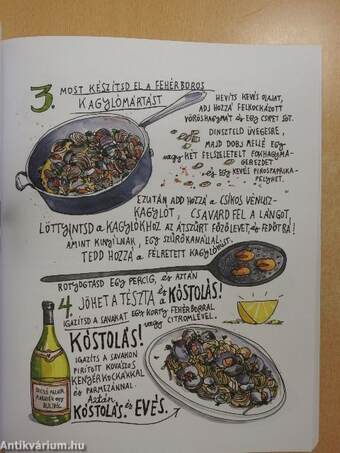 3. MOST KÉSZÍTSD EL A FEHÉRBOROS
KAGYLÓMÁRTÁST
HEVÍTS KEVÉS OLAJAT,
ADJ HOZZÁ FELKOCKÁZOTT
VÖRÖSHAGYMÁT ÉS EGY CSIPET SÓT.
DINSZTELD ÜVEGESRE,
MAJD DOBJ MELLÉ EGY
VAGY KÉT FELSZELETELT FOKHAGYMA-
GEREZDET
ÉS EGY KEVÉS PIROSPAPRIKA-
PELYHET.
EZUTÁN ADD HOZZÁ A CSÍKOS VÉNUSZ-
KAGYLÓT, CSAVARD FEL A LÁNGOT,
LÖTTYINTSD A KAGYLÓKHOZ AZ ÁTSZŰRT FŐZŐLEVET, ÉS FEDD RÁ!
AMINT KINYÍLNAK, EGY SZŰRŐKANÁLLAL
TEDD HOZZÁ A FÉLRETETT KAGYLÓHÚST.
ROTYOGTASD EGY PERCIG, ÉS AZTÁN
4. JÖHET A TÉSZTA ÉS A KÓSTOLÁS!
IGAZÍTSD A SAVAKAT EGY KORTY FEHÉRBORRAL
VAGY CITROMLÉVEL.
KÓSTOLÁS!
IGAZÍTS A SAVAKON
PIRÍTOTT KOVÁSZOS
KENYÉRKOCKÁKKAL
ÉS PARMEZÁNNAL.
AZTÁN
KÓSTOLÁS ÉS EVÉS.
Antikvárium.hu